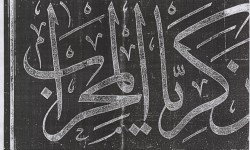 زكريا المحراب